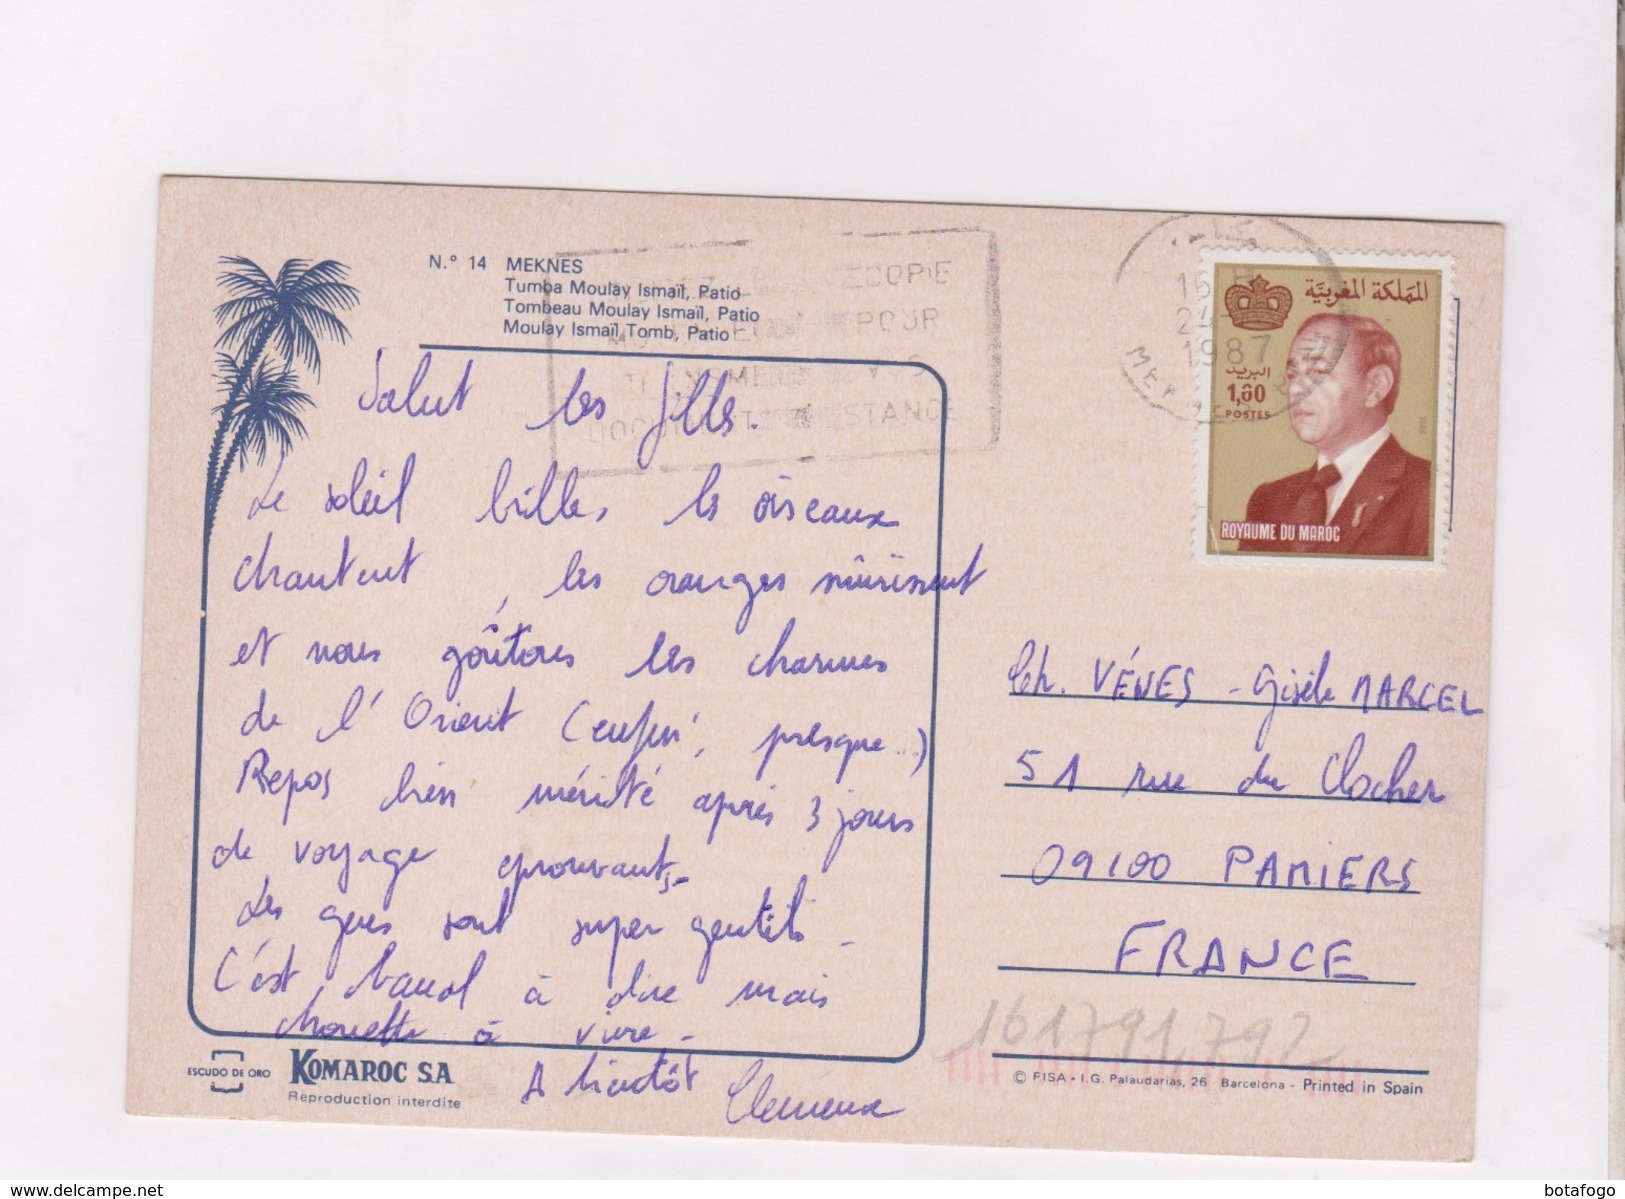 N.º 14 MEKNES
Tumba Moulay Ismaïl, Patio
Tombeau Moulay Ismaïl, Patio
Moulay Ismaïl Tomb, Patio
Salut les filles.
Le soleil brilles, les oiseaux
chantent, les oranges mûrissent
et nous goûtons les charmes
de l'Orient (enfin, presque...)
Repos bien mérité après 3 jours
de voyage éprouvants.
Les gens sont super gentils -
C'est banal à dire mais
chouette à vivre -
A bientôt Clémence
ECOPIE
POUR
STANCE
1987
المملكة المغربية
البريد
1,60
POSTES
ROYAUME DU MAROC
Ch. VÉNES - Gisèle MARCEL
51 rue du Clocher
09100 PAMIERS
FRANCE
161791,792
ESCUDO DE ORO
KOMAROC S.A
Reproduction interdite
© FISA - I.G. Palaudarias, 26 - Barcelona - Printed in Spain
www.delcampe.net
botafogo